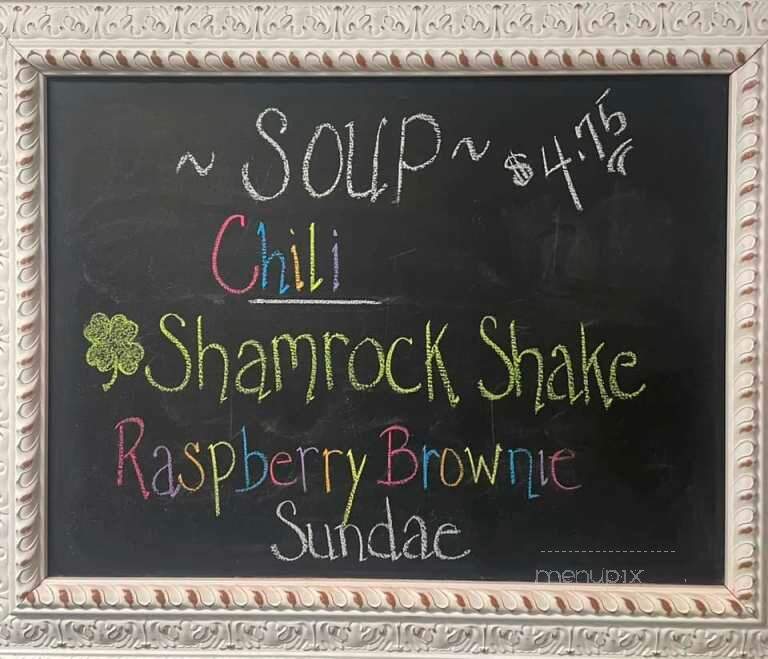 ~ Soup ~ $4.75
Chili
Shamrock Shake
Raspberry Brownie
Sundae
menupix